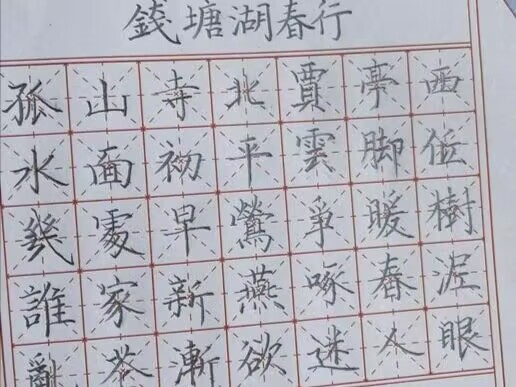 錢塘湖春行
孤山寺北賈亭西
水面初平雲脚低
幾處早鶯爭暖樹
誰家新燕啄春泥
亂花漸欲迷人眼